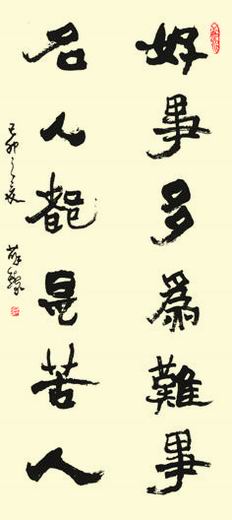 好事多為難事
名人都是苦人
己卯之夏